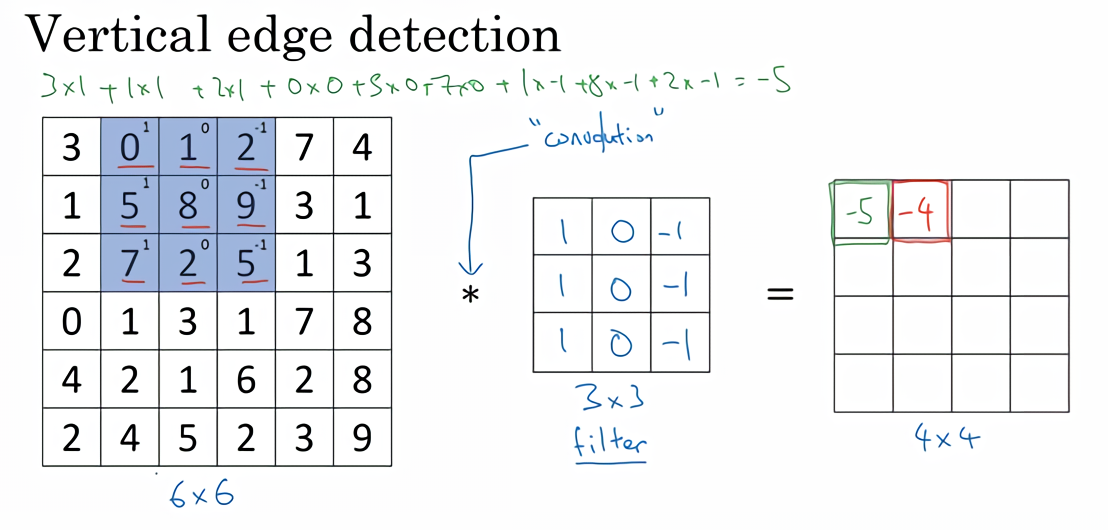 Vertical edge detection
3×1 + 1×1 + 2×1 + 0×0 + 5×0 + 7×0 + 1×-1 + 8×-1 + 2×-1 = -5
"convolution"
3 0 1 1 0 2 -1 7 4
1 5 1 8 0 9 -1 3 1
2 7 1 2 0 5 -1 1 3
0 1 3 1 7 8
4 2 1 6 2 8
2 4 5 2 3 9
6×6
*
1 0 -1
1 0 -1
1 0 -1
3×3
filter
=
-5 -4
4×4